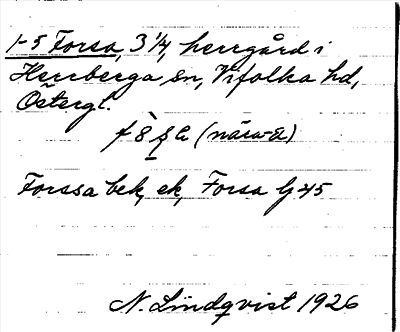 1-5 Forsa, 3 1/4, herrgård i
Herrberga sn, Vifolka hd,
Östergl.
(nära-a)
Forssa bek, ek, Forsa Gj 45
N. Lindqvist 1926